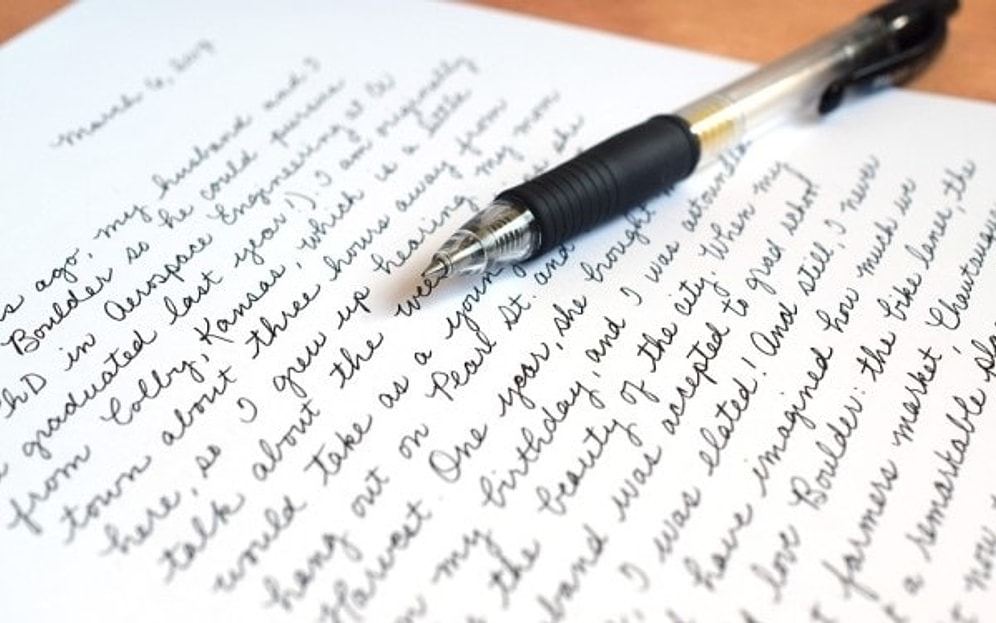 March
s ago, my husband and I
Boulder so he could pursue
PhD in Aerospace Engineering at
graduated last year!). I am originally
from Colby, Kansas, which is a little
town about three hours away from
here, so I grew up hearing my mom
talk about the week she
would take as a young and
hang out on Pearl St. and
Harvest. One year, she brought
on my birthday, and I was
the beauty of the city. When my
husband was accepted to grad school
I was elated! And still, I never
have imagined how much we
love Boulder: the bike lanes, the
farmers market, Chautauqua
a remarkable
now